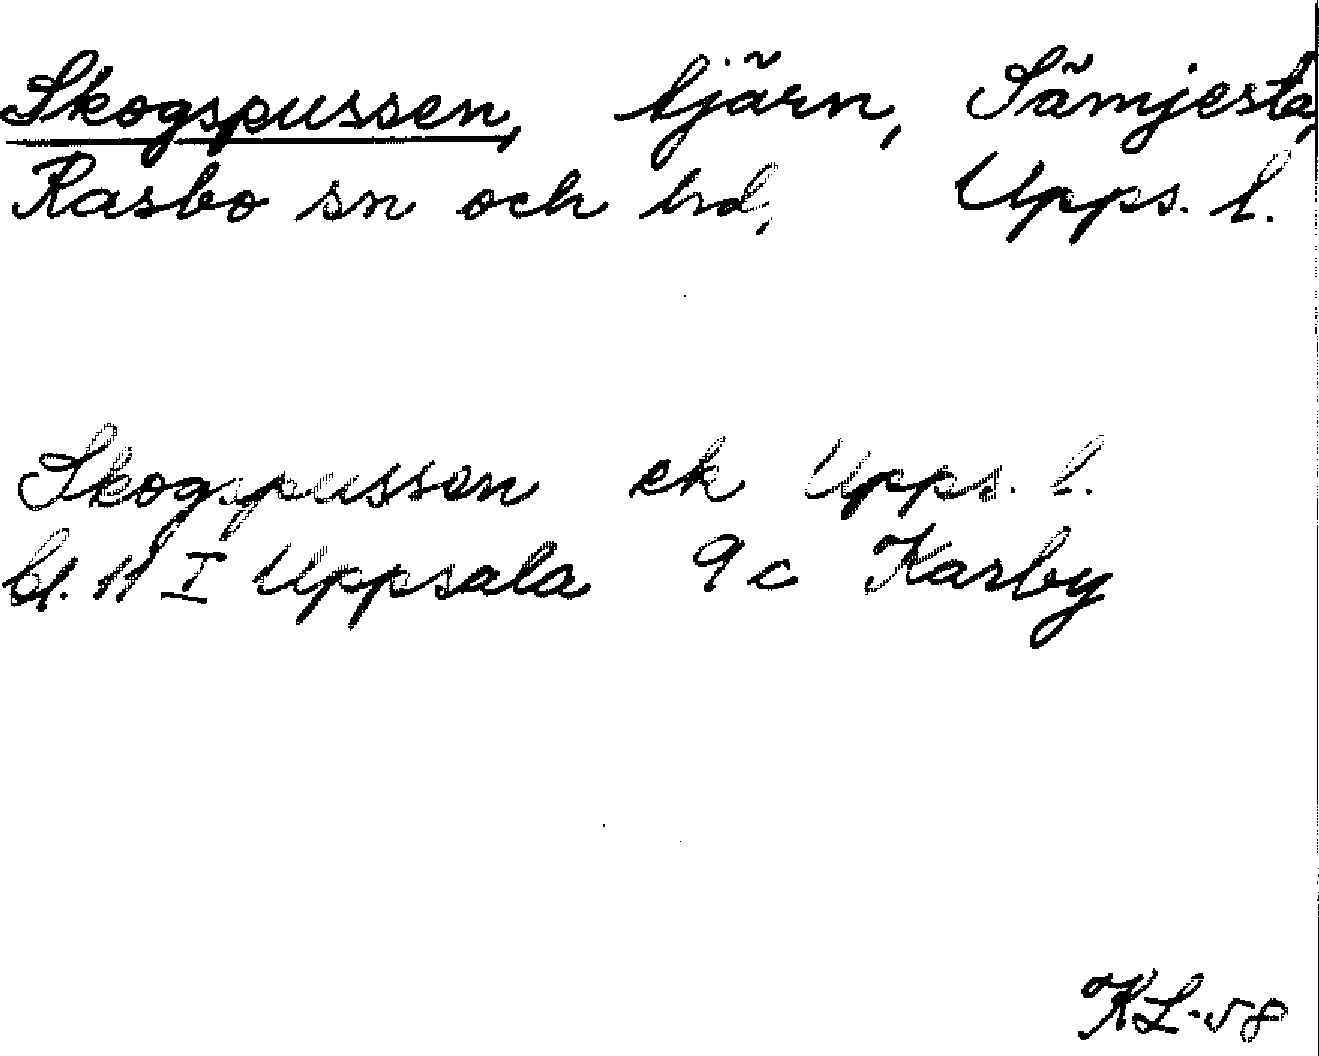 Skogspussen, tjärn, Sämjesta,
Rasbo sn och hd, Upps. l.
Skogspussen ek Upps. l.
bl. 11 I Uppsala 9c Karby
KL-58